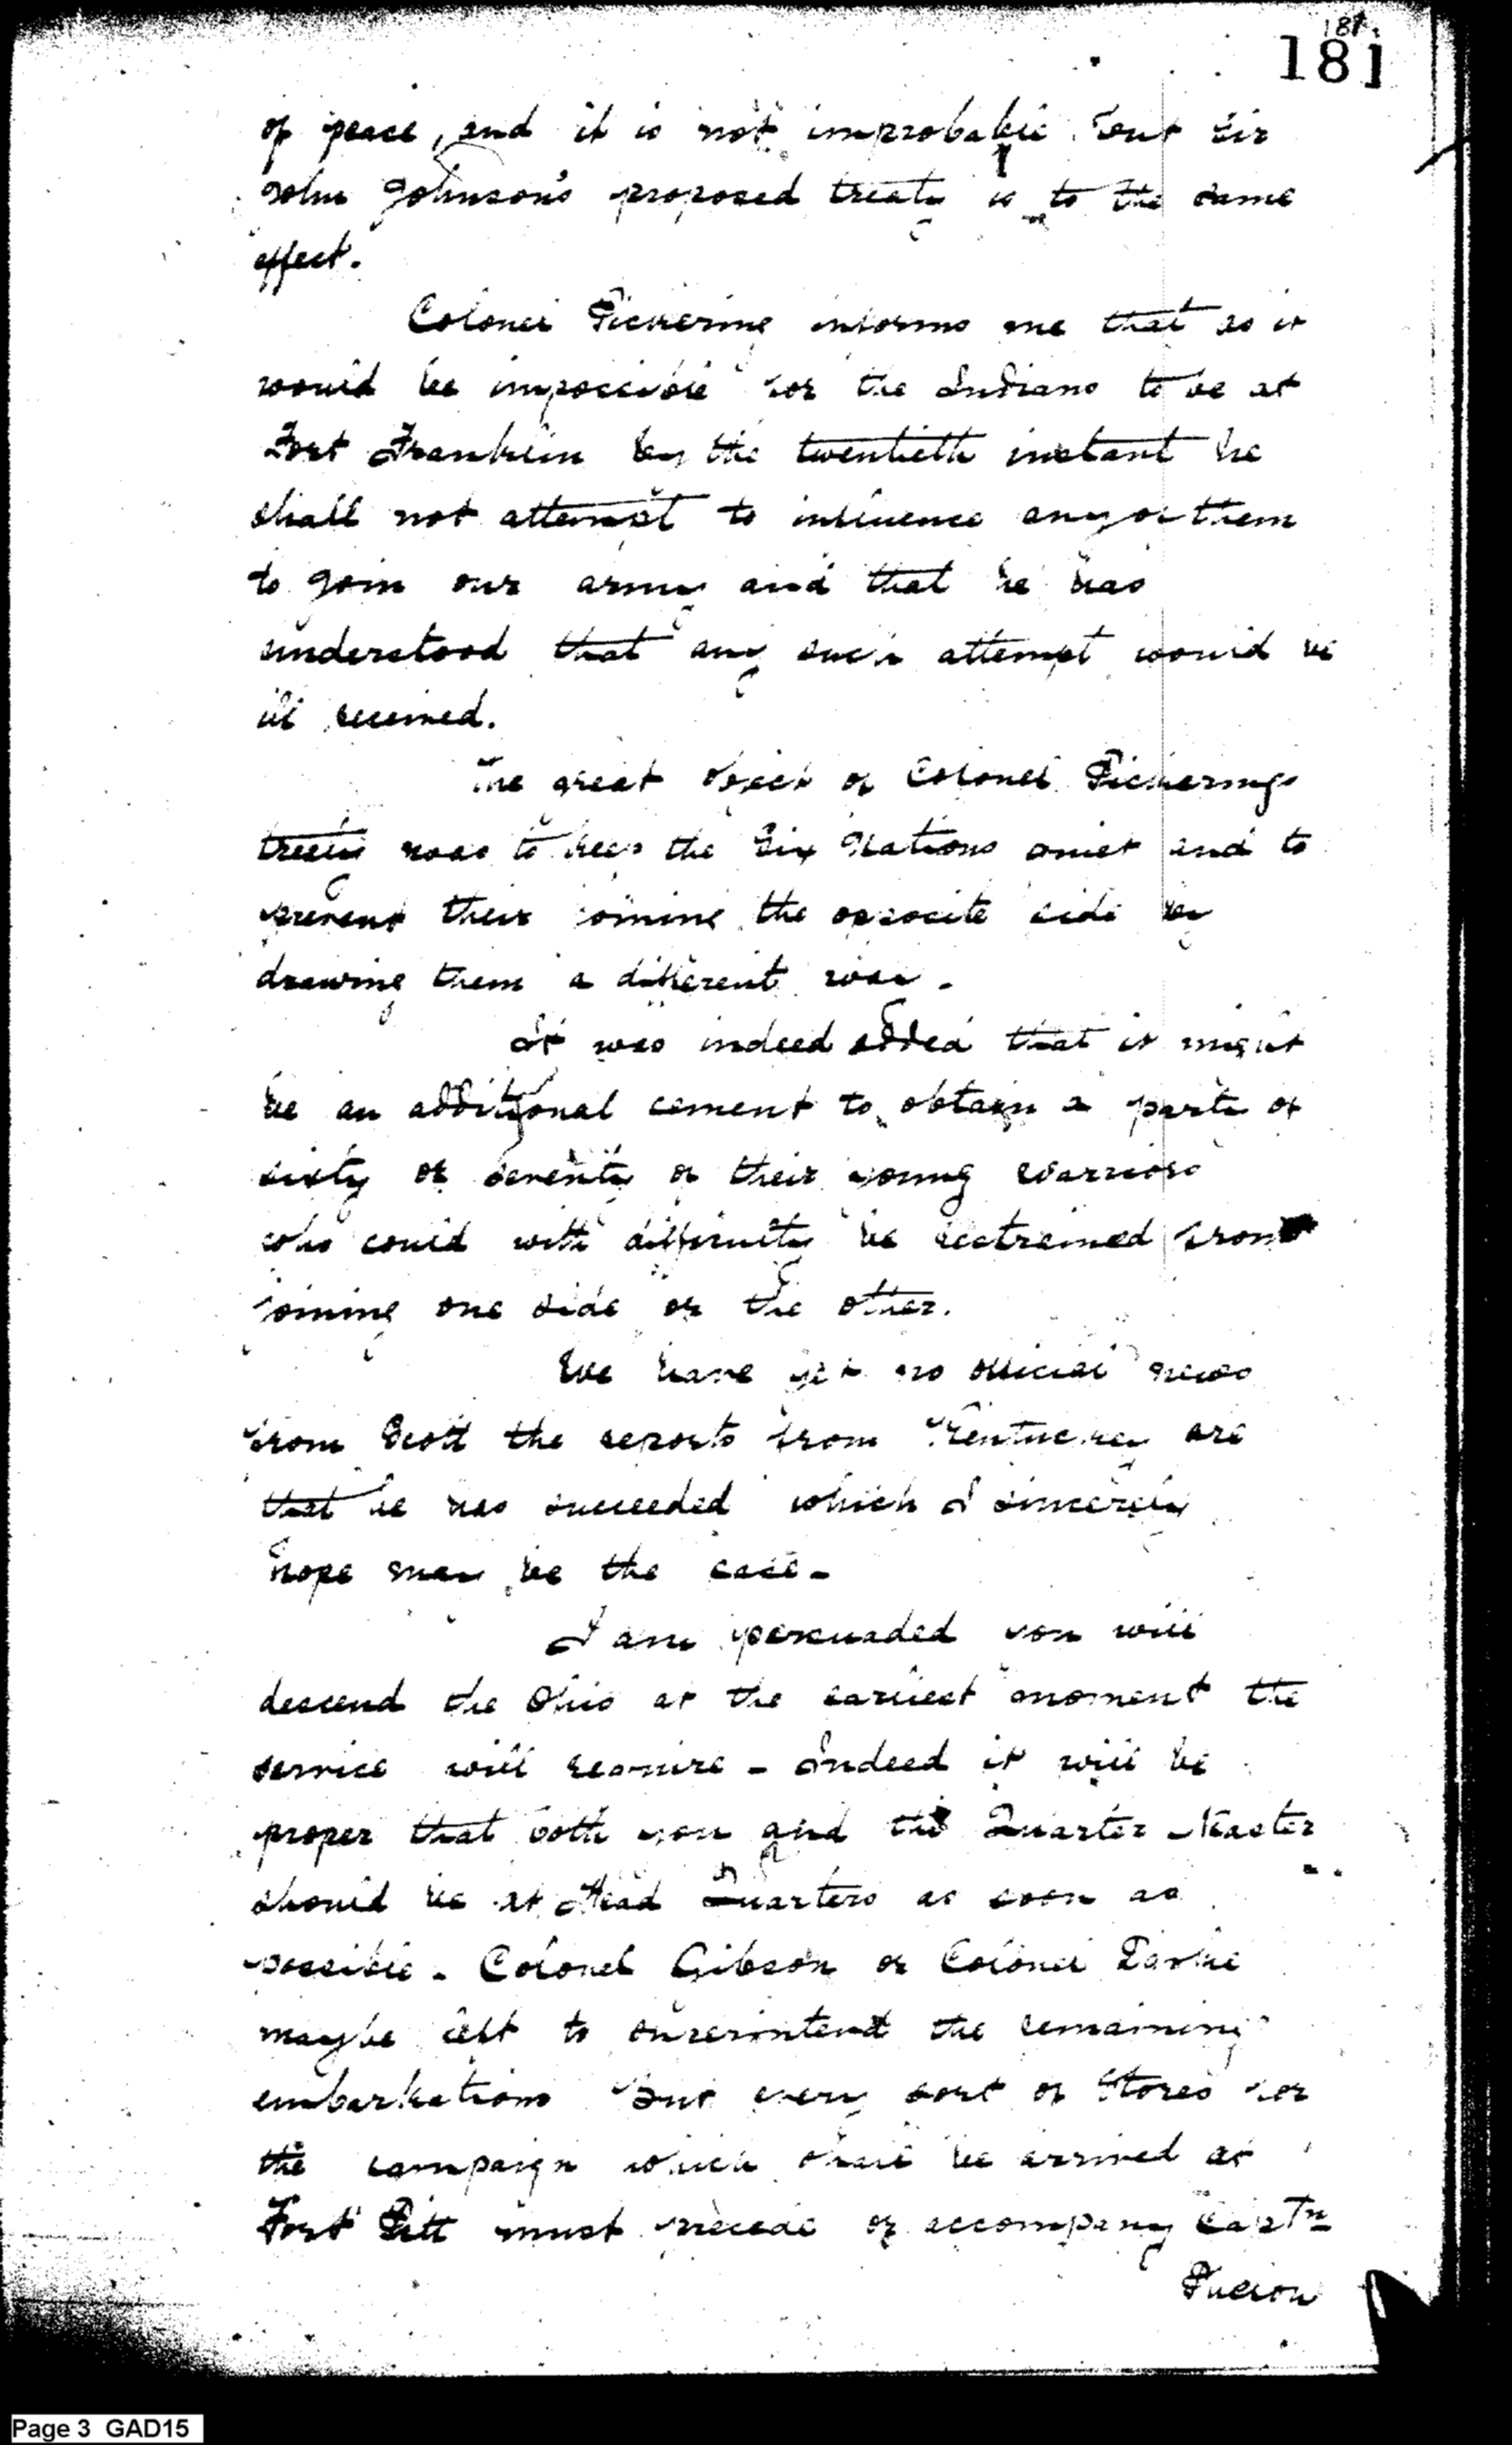 181.
181
of peace, and it is not improbable but Sir
John Johnson's proposed treaty is to the same
effect.
Colonel Pickering informs me that as it
would be impossible for the Indians to be at
Fort Franklin by the twentieth instant he
shall not attempt to influence any of them
to join our army and that he has
understood that any such attempt would be
ill received.
The great object of Colonel Pickerings
treaty was to keep the Six Nations quiet and to
prevent their joining the opposite side by
drawing them a different way.
It was indeed added that it might
be an additional cement to obtain a party of
sixty or seventy of their young Warriors
who could with difficulty be restrained from
joining one side or the other.
We have yet no official news
from Scott the reports from Kentuckey are
that he has succeeded which I sincerely
hope may be the case-
I am persuaded you will
descend the Ohio at the earliest moment the
service will require - Indeed it will be
proper that both you and the Quarter Master
should be at Head Quarters as soon as
possible - Colonel Gibson or Colonel Darke
maybe left to superintend the remaining
embarkations But every sort of Stores for
the campaign which shall be arrived at
Fort Pitt must precede or accompany Captn
Phelon
Page 3 GAD15